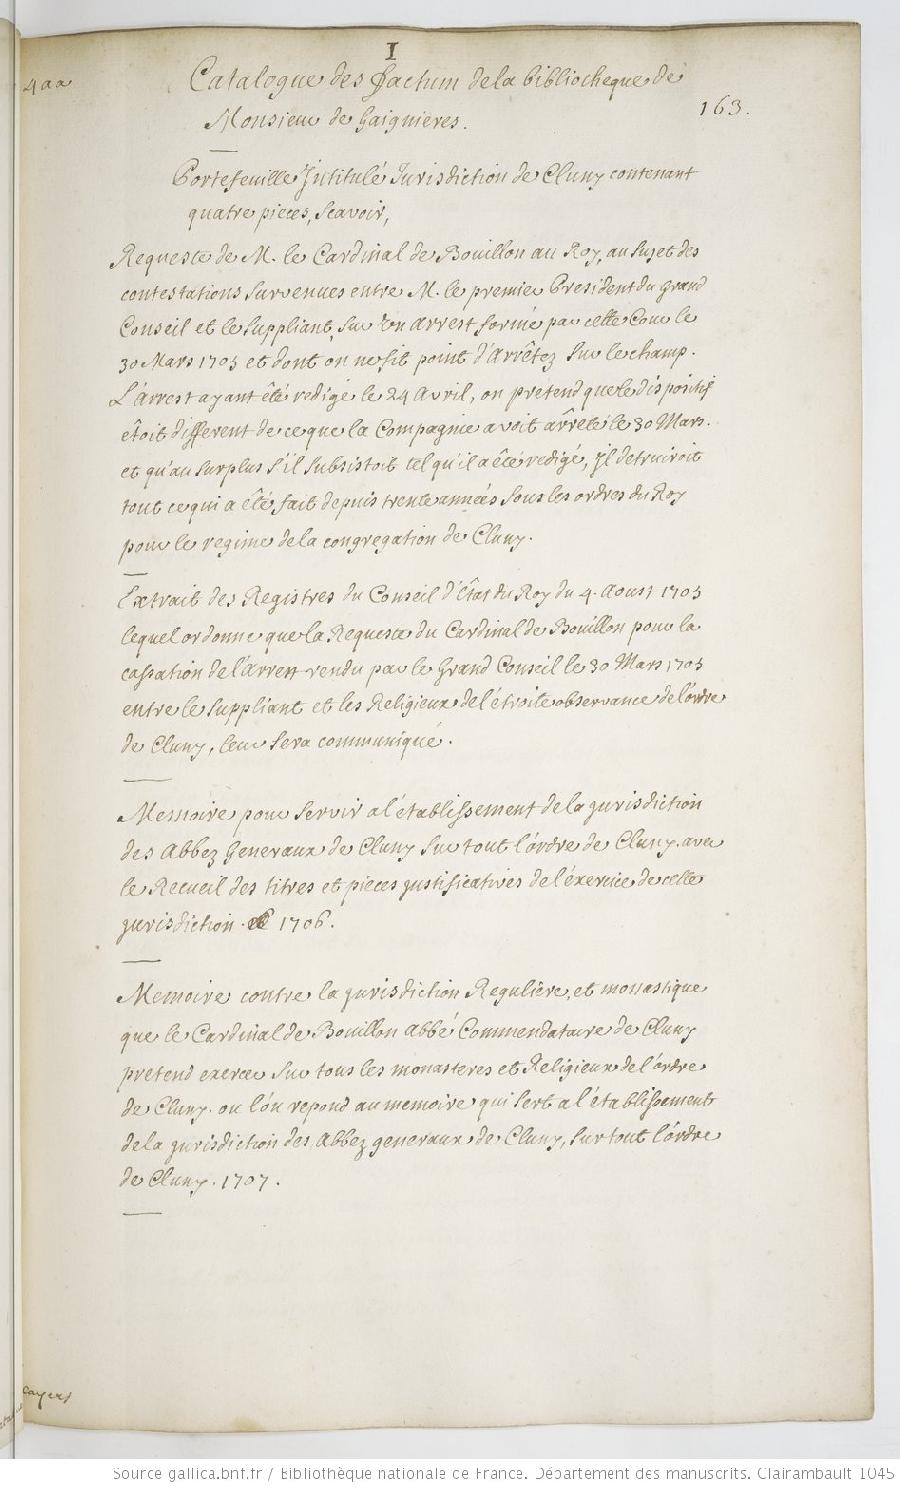 I
4aa
Catalogue des factum de la bibliotheque de
Monsieur de Gaignieres.
163.
Portefeuille Jntitulé Jurisdiction de Cluny contenant
quatre pieces, scavoir,
Requeste de M. le Cardinal de Bouillon au Roy, au sujet des
contestations survenues entre M. le premier President du grand
Conseil et le suppliant, sur un arrest formé par cette Cour le
30 Mars 1705 et dont on ne fit point d'arrêtez sur le champ.
L'arrest ayant êté redigé le 24 Avril, on pretend que le dispositif
êtoit different de ce que la Compagnie avoit arrêté le 30 Mars.
et qu'au surplus s'il subsistoit tel qu'il a êté redigé, Jl detruiroit
tout ce qui a êté fait depuis trente années sous les ordres du Roy
pour le regime de la congregation de Cluny.
Extrait des Registres du Conseil d'Êtat du Roy du 4. Aoust 1705
lequel ordonne que la Requeste du Cardinal de Bouillon pour la
cassation de l'arrest rendu par le Grand Conseil le 30 Mars 1705
entre le suppliant et les Religieux de l'étroite observance de l'ordre
de Cluny, leur sera communiqué.
Memoire pour servir a l'établissement de la jurisdiction
des Abbez Generaux de Cluny sur tout l'ordre de Cluny. avec
le Recueil des titres et pieces justificatives de l'éxercice de cette
jurisdiction. 1706.
Memoire contre la jurisdiction Reguliere, et monastique
que le Cardinal de Bouillon abbé Commendataire de Cluny
pretend exercer sur tous les monasteres et Religieux de l'ordre
de Cluny. ou l'on repond au memoire qui sert a l'établissement
de la jurisdiction des Abbez generaux de Cluny, sur tout l'ordre
de Cluny. 1707.
cayers
Source gallica.bnf.fr / Bibliothèque nationale de France. Département des manuscrits. Clairambault 1045